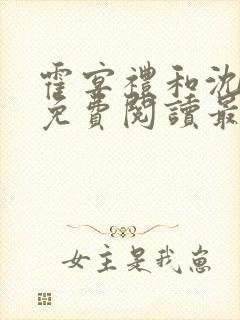 霍宴禮和沈
免費閱讀最
女主是我崽